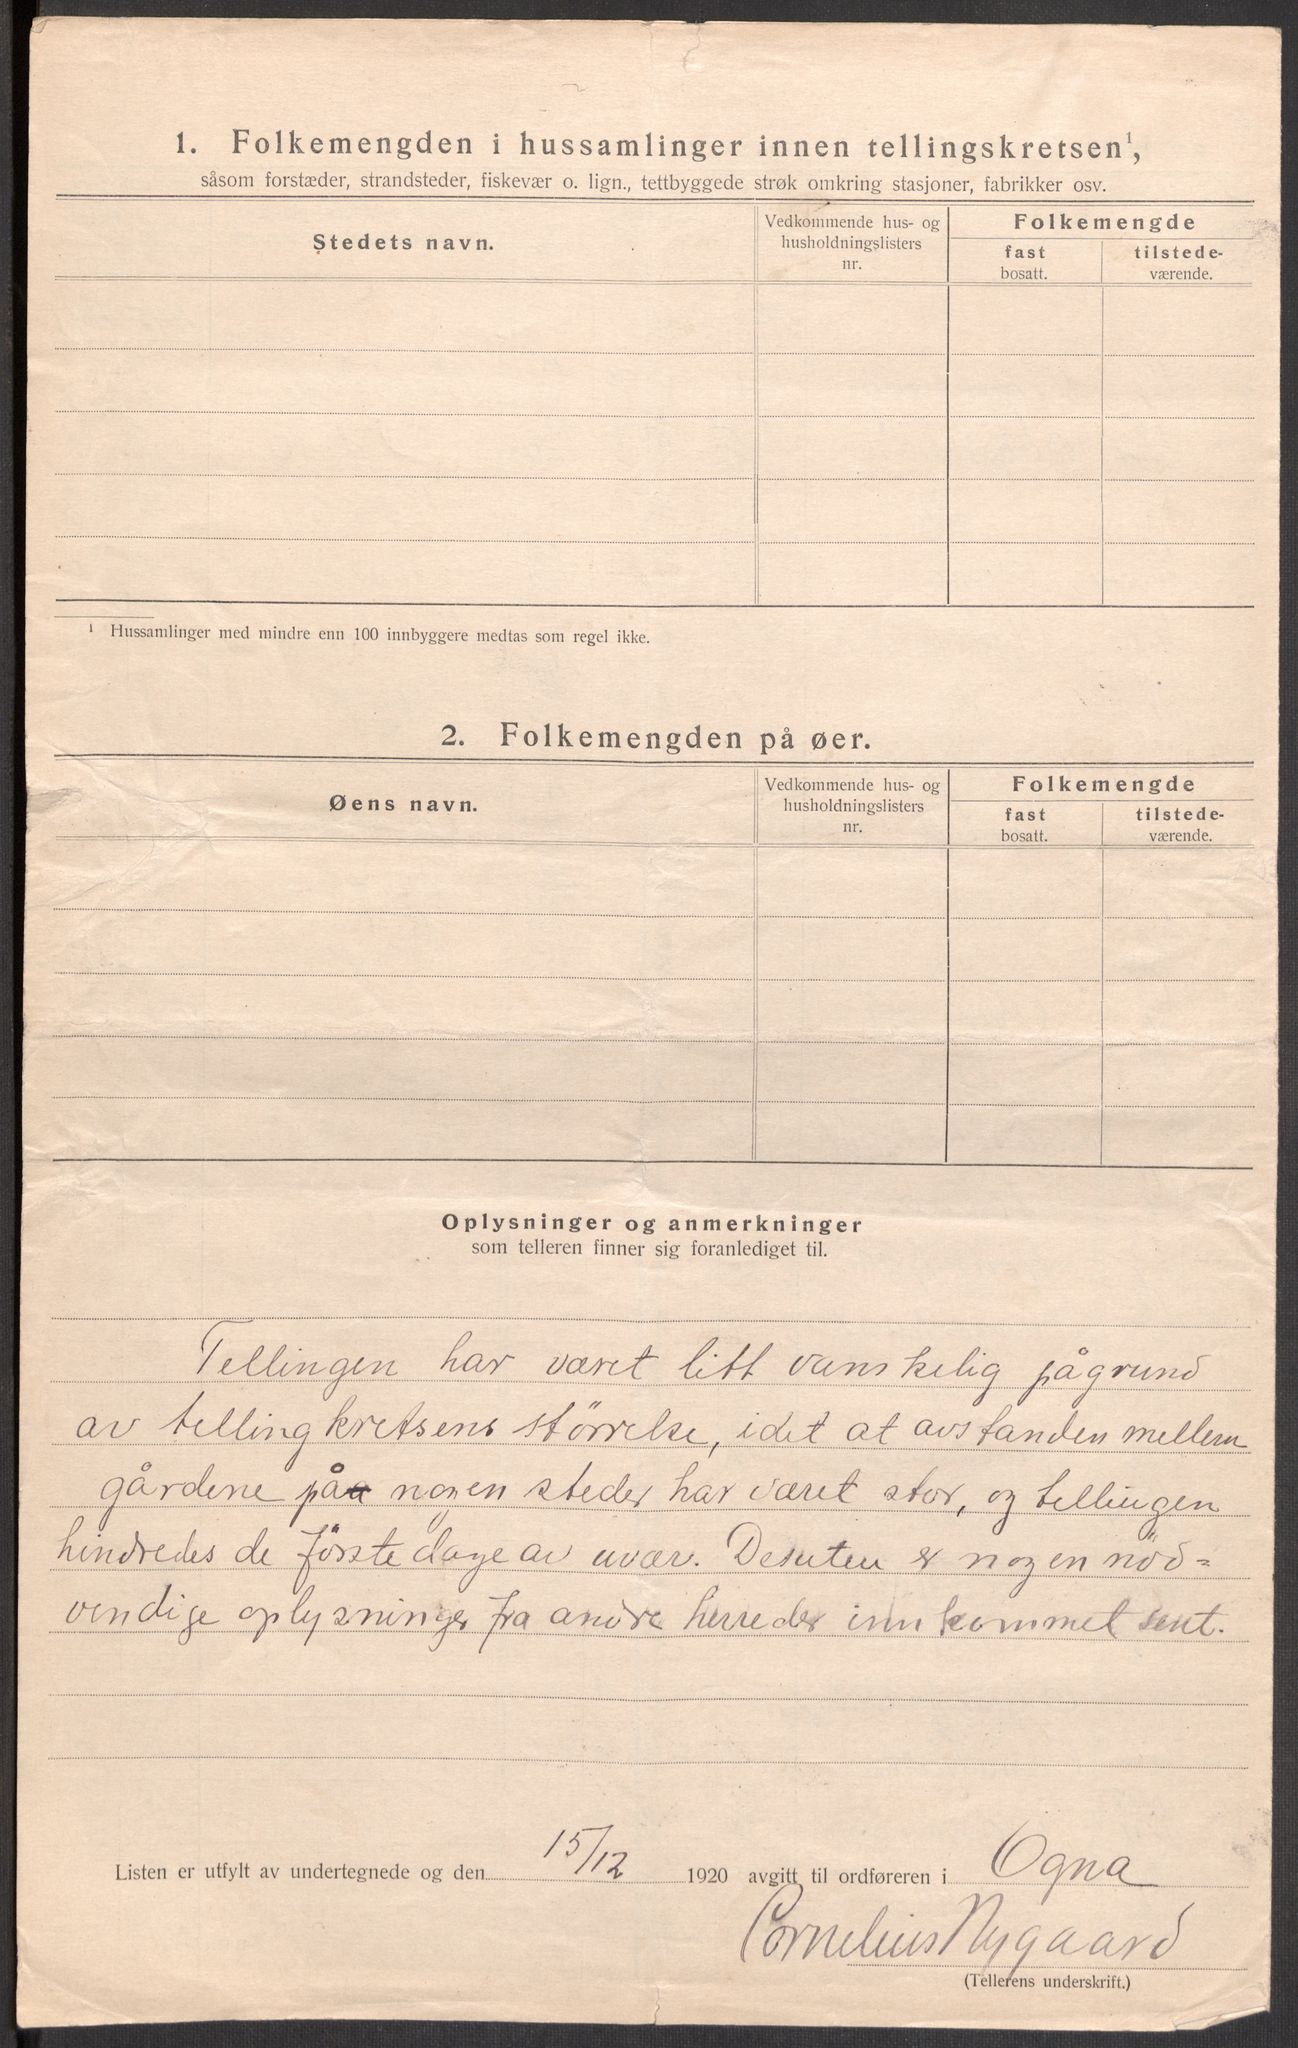 1. Folkemengden i hussamlinger innen tellingskretsen¹,
såsom forstæder, strandsteder, fiskevær o. lign., tettbyggede strøk omkring stasjoner, fabrikker osv.
Stedets navn.
Vedkommende hus- og
husholdningslisters
nr.
Folkemengde
fast
bosatt.
tilstede-
værende.
¹ Hussamlinger med mindre enn 100 innbyggere medtas som regel ikke.
2. Folkemengden på øer.
Øens navn.
Vedkommende hus- og
husholdningslisters
nr.
Folkemengde
fast
bosatt.
tilstede-
værende.
Oplysninger og anmerkninger
som telleren finner sig foranlediget til.
Tellingen har været litt vanskelig på grund
av tellingkretsens störrelse, idet at avstanden mellem
gårdene på nogen steder har været stor, og tellingen
hindredes de förste dage av uvær. Desuten er nogen nöd=
vendige oplysninger fra andre herreder innkommet sent.
Listen er utfylt av undertegnede og den 15/12 1920 avgitt til ordføreren i Ogna
Cornelius Nygaard
(Tellerens underskrift.)